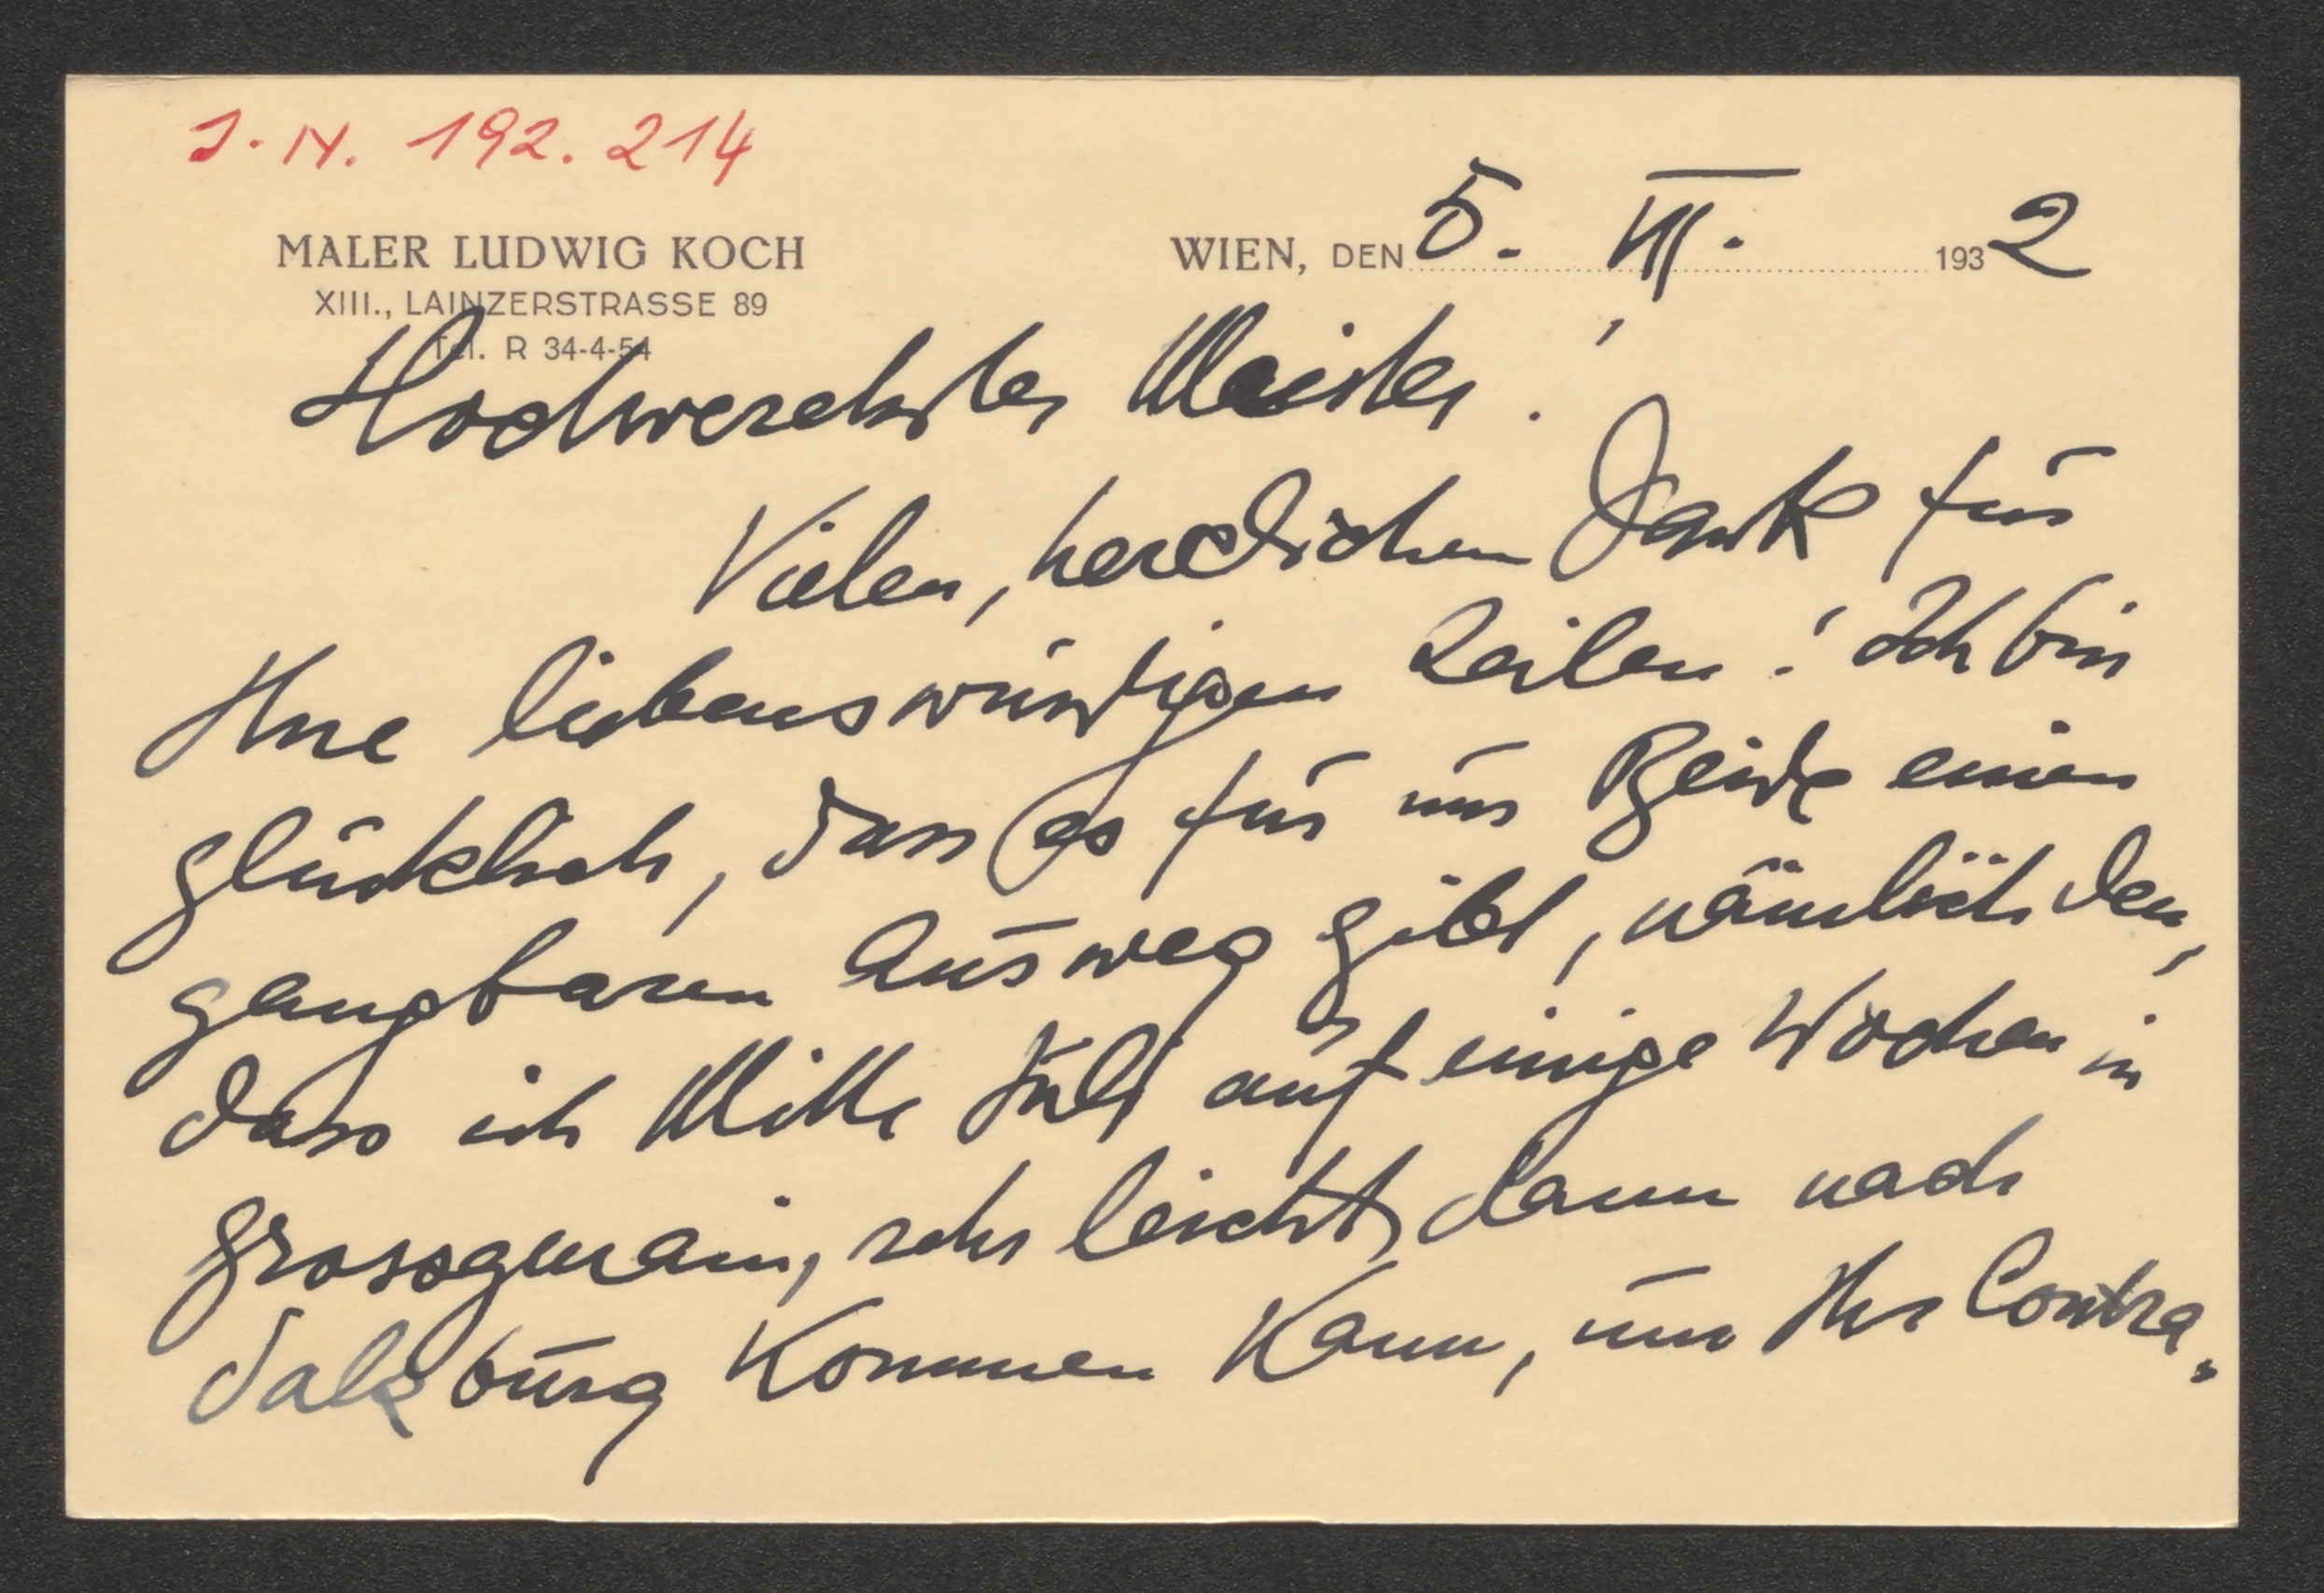 J. N. 192.214
MALER LUDWIG KOCH
XIII., LAINZERSTRASSE 89
Tel. R 34-4-54
WIEN, DEN 5. VII. 1932
Hochverehrter Meister!
Vielen, herzlichen Dank für
Ihre liebenswürdigen Zeilen! Ich bin
glücklich, dass es für uns Beide einen
gangbaren Ausweg gibt, nämlich den,
dass ich Mitte Juli auf einige Wochen in
Grossgmain, sehr leicht dann nach
Salzburg kommen kann, um Ihr Contra-